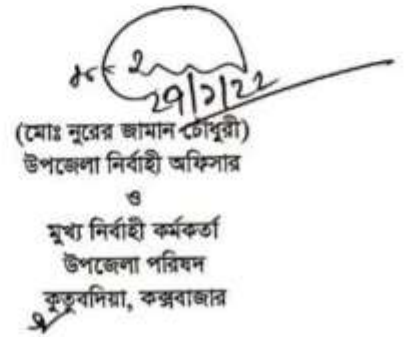 ২৭/১/২২
(মোঃ নুরের জামান চৌধুরী)
উপজেলা নির্বাহী অফিসার
ও
মুখ্য নির্বাহী কর্মকর্তা
উপজেলা পরিষদ
কুতুবদিয়া, কক্সবাজার